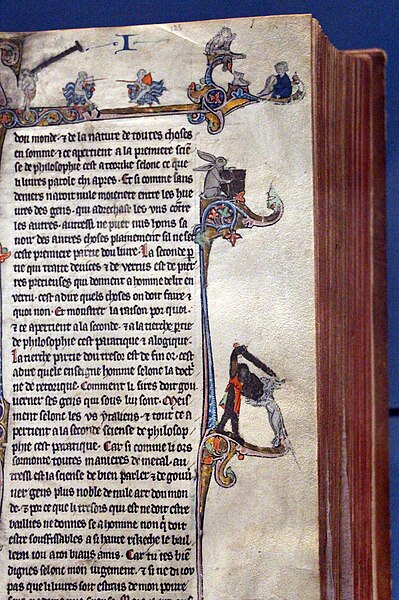 I
dou monde · & de la nature de toutes choses
en somme · & ce apertient a la premiere scien
se de philosophie cest a teorike selonc ce que
li livres parole chi apres · Et si comme sans
deniers na roit nule moienete entre les hue
vres des gens · qui adrechast les uns contre
les autres · autresi ne puet nus hons sa
voir des autres choses plainement sil ne set
ceste premiere partie dou livre · La seconde p
tie qui traite de vices & de vertus est de pier
res precieuses qui donnent a home delit et
vertu · cest a dire quels choses on doit faire &
quoi non · Et monstrer la raison por quoi ·
& ce apertient a la seconde · & a la tierche ptie
de philosophie cest pratique & a logique ·
La tierche partie dou tresor est de fin or · cest
a dire quele enseigne homme selonc la doct
ne de retorique · Comment li sires doit gou
verner ses gens qui sous lui sont · Meis
ment selonc les us ytaliens · & tout ce a
pertient a la seconde sciense de philosop
phie cest paratique · Car si comme li ors
sormonte toutes manieres de metal · au
tresi est la sciense de bien parler & de gouv
ner gens plus noble de nule art dou mon
de · & por ce que li tresors qui est ne doit estre
bailliés ne donnes se a homme non qi doit
estre souffissables a si haute rikeche le bail
lerai iou a toi biaus amis · Car tu ies bien
dignes selonc mon iugement · & si ne di ioy
pas que li livres soit estrais de mon povre